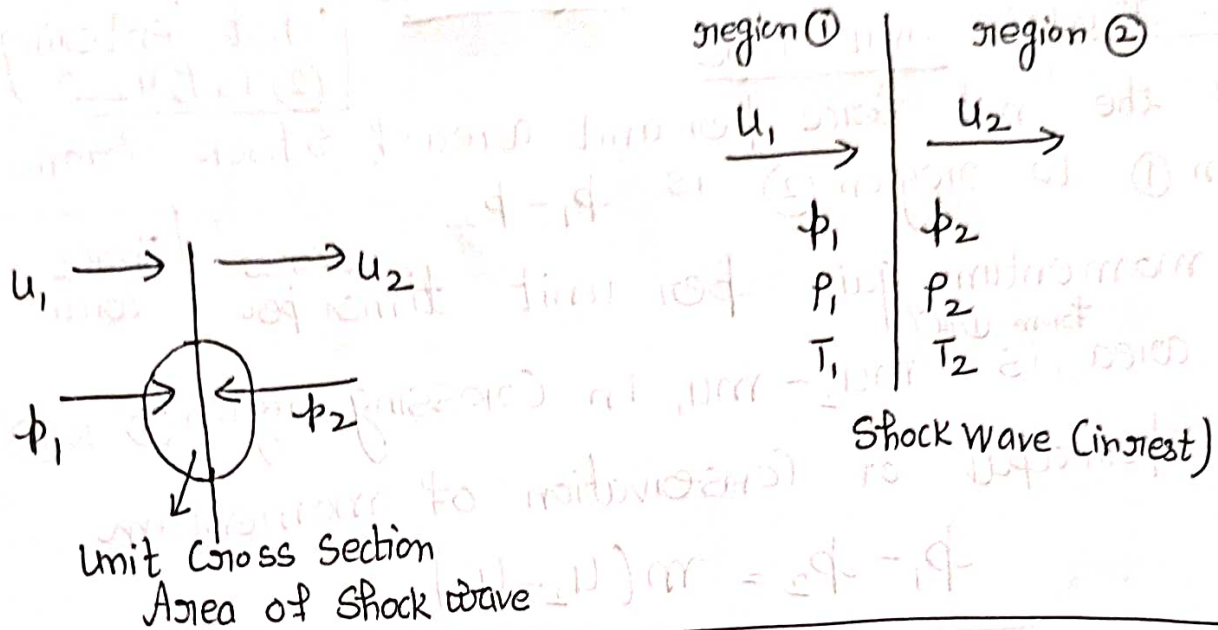 region ① region ②
u₁ u₂
p₁ p₂
ρ₁ ρ₂
T₁ T₂
Shock Wave (in rest)
u₁ u₂
p₁ p₂
Unit Cross Section
Area of Shock wave